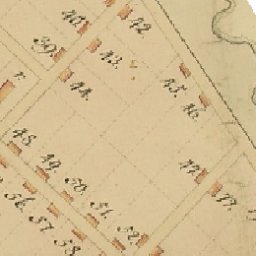 40.
42.
39.
43.
44.
45.
46.
48.
49.
50.
51.
52.
47.
56.
57.
58.